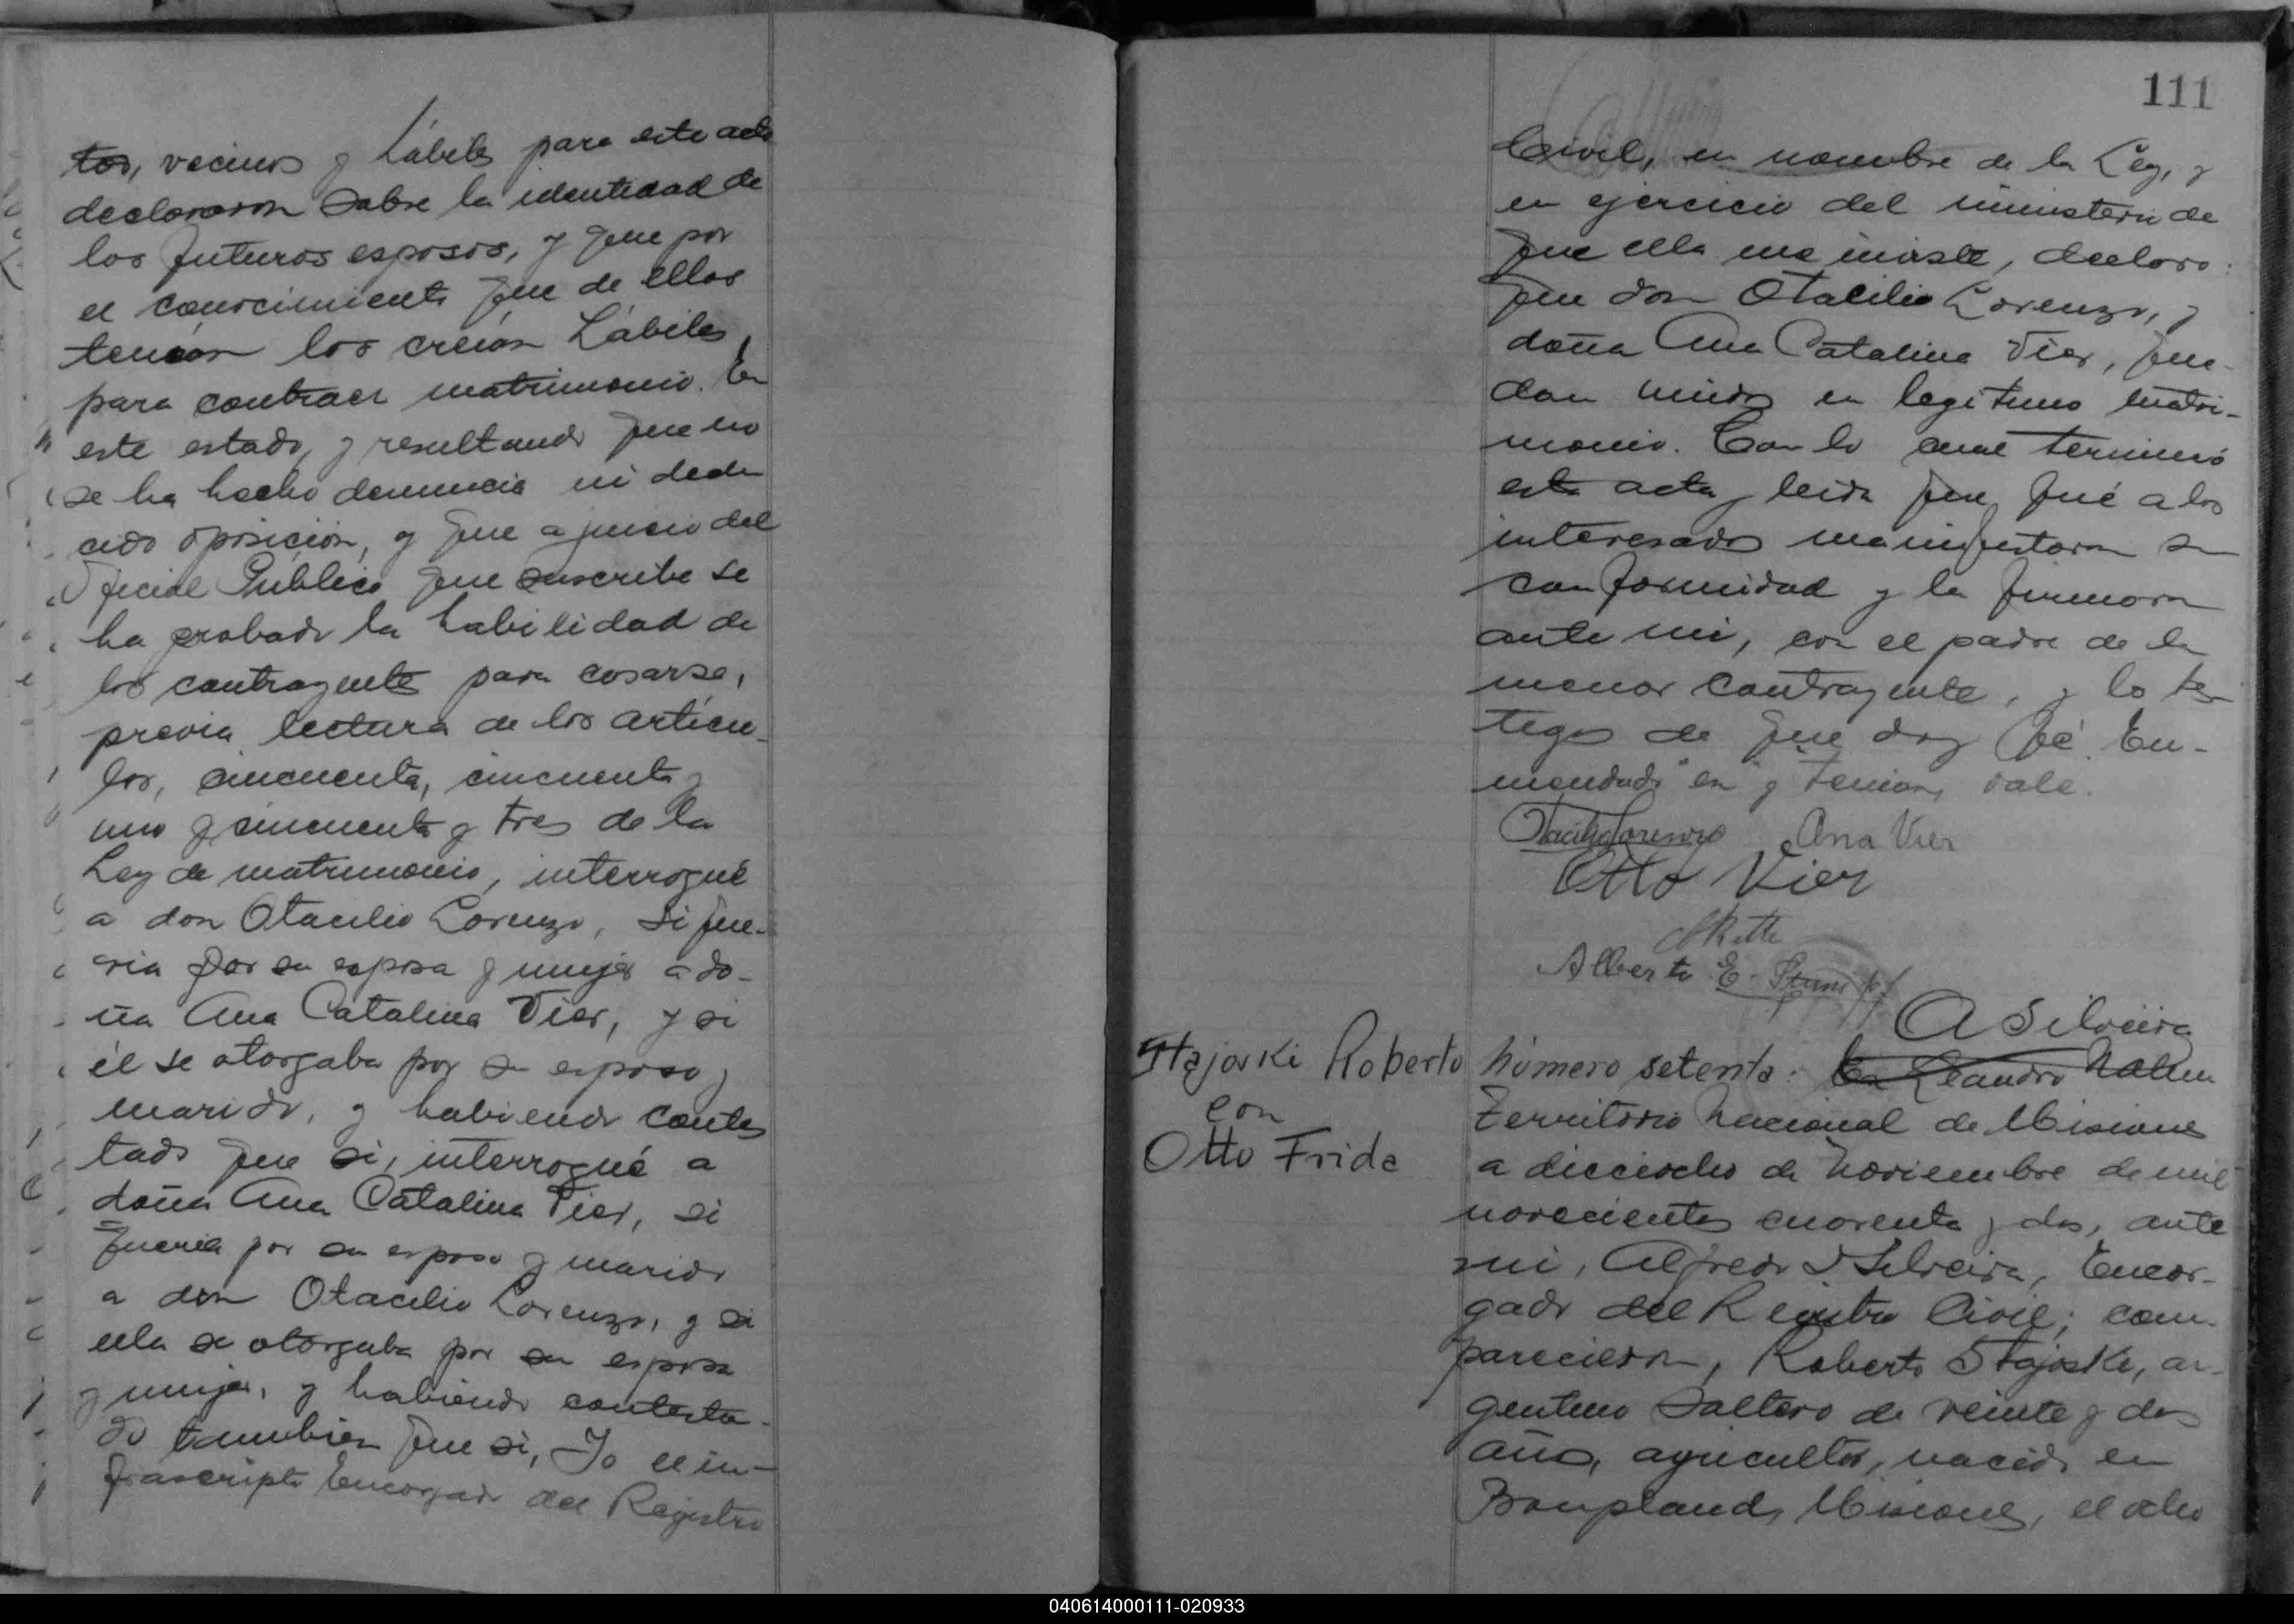 tos, vecinos y hábiles para este acto
declararon sobre la identidad de
los futuros esposos, y que por
el conocimiento que de ellos
tenían los creían hábiles
para contraer matrimonio. En
este estado, y resultando que no
se ha hecho denuncia ni dedu
cido oposición, y que a juicio del
Oficial Público que suscribe se
ha probado la habilidad de
los contrayentes para casarse,
previa lectura de los artícu-
los, cincuenta, cincuenta y
uno y cincuenta y tres de la
Ley de matrimonio, interrogué
a don Otacilio Lorenzo, si que-
ria por su esposa y mujer a do-
ña Ana Catalina Vier, y si
él se otorgaba por su esposo y
marido, y habiendo contes
tado que si, interrogué a
doña Ana Catalina Vier, si
queria por su esposo y marido
a don Otacilio Lorenzo, y si
ella se otorgaba por su esposa
y mujer, y habiendo contesta-
do tambien que si, Yo el in-
frascripto Encargado del Registro
111
Civil, en nombre de la Ley, y
en ejercicio del ministerio de
que ella me inviste, declaro:
que don Otacilio Lorenzo, y
doña Ana Catalina Vier, que-
dan unidos en legitimo matri-
monio. Con lo cual terminó
esta acta y leida que fué a los
interesados manifestaron su
conformidad y la firmaron
ante mi, con el padre de la
menor contrayente, y los tes
tigos de que doy fé. En-
mendado "en" y tenian, vale.
Otacilio Lorenzo Ana Vier
Otto Vier
Alberto E.
A Silveira
Stajoski Roberto
con
Otto Frida
Número setenta: En Leandro N Alem
Territorio Nacional de Misiones
a dieciocho de Noviembre de mil
novecientos cuarenta y dos, ante
mi, Alfredo Silveira, Encar-
gado del Registro Civil; com-
parecieron, Roberto Stajoski, ar-
gentino soltero de veinte y dos
años, agricultor, nacido en
Bonpland, Misiones, el ocho
040614000111-020933